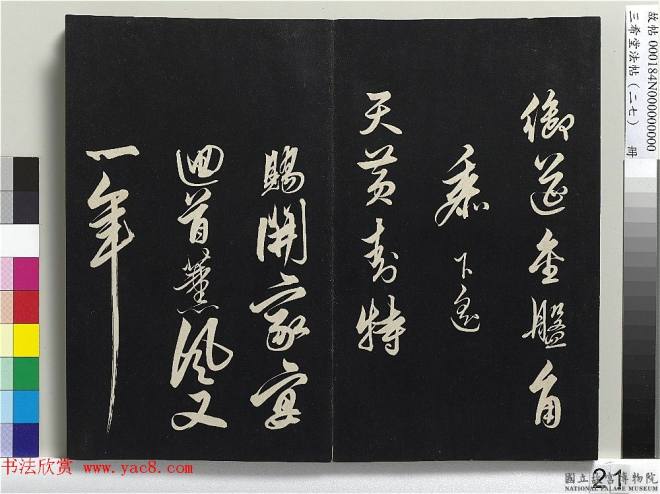 故帖 000184N000000000
三希堂法帖（二七） 冊
御筵金盤角
黍下遥
天黄封特
賜開家宴
迴首薰風又
一年
书法欣赏 www.yac8.com
21
國立故宮博物院
NATIONAL PALACE MUSEUM